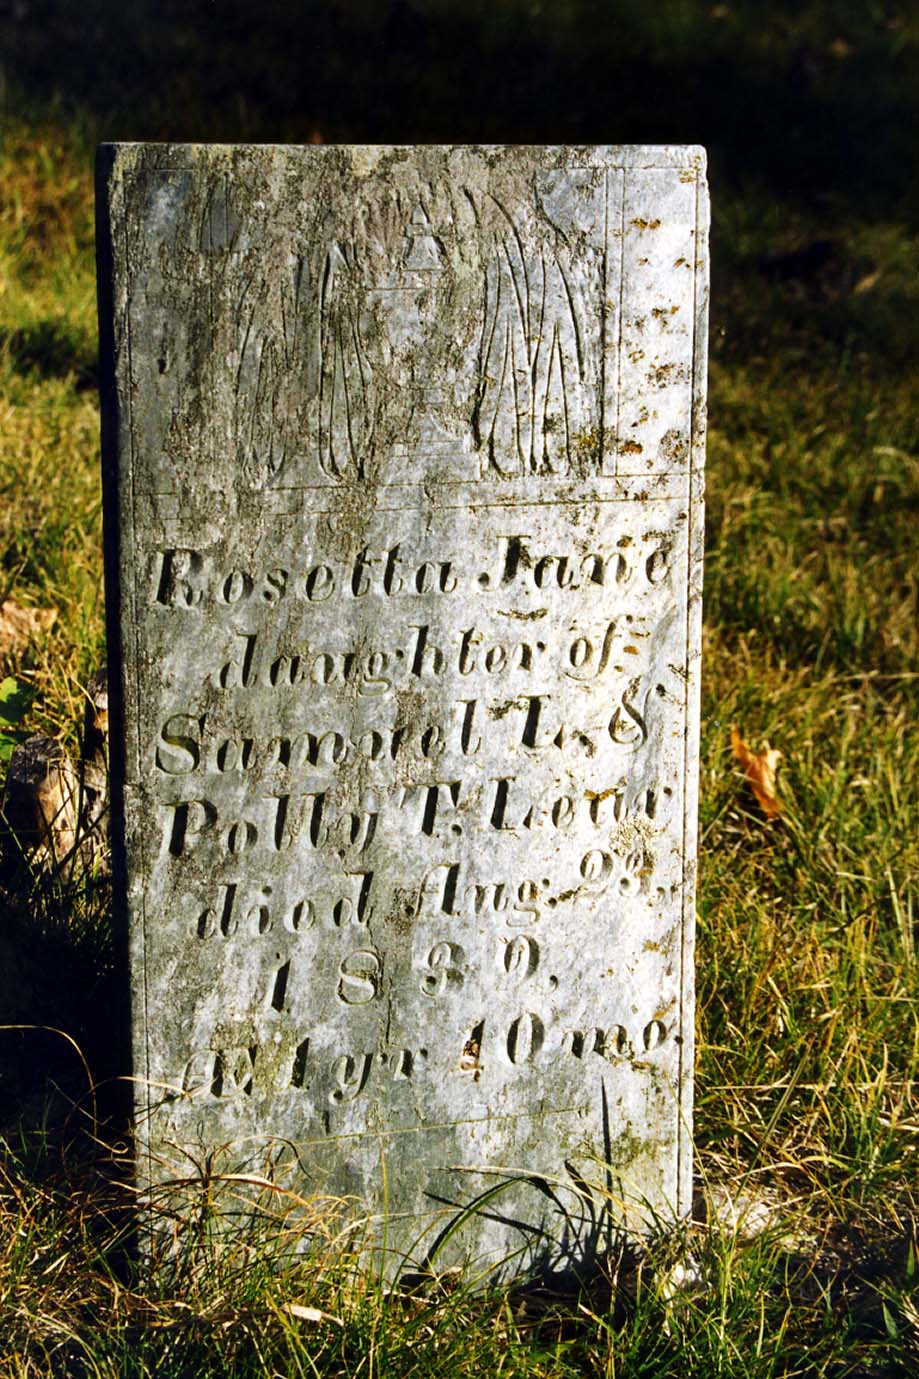 Rosetta Jane
daughter of
Samuel L. &
Polly T. Lenr
died Aug. 28,
1839.
Æ 1 yr 10 mo.